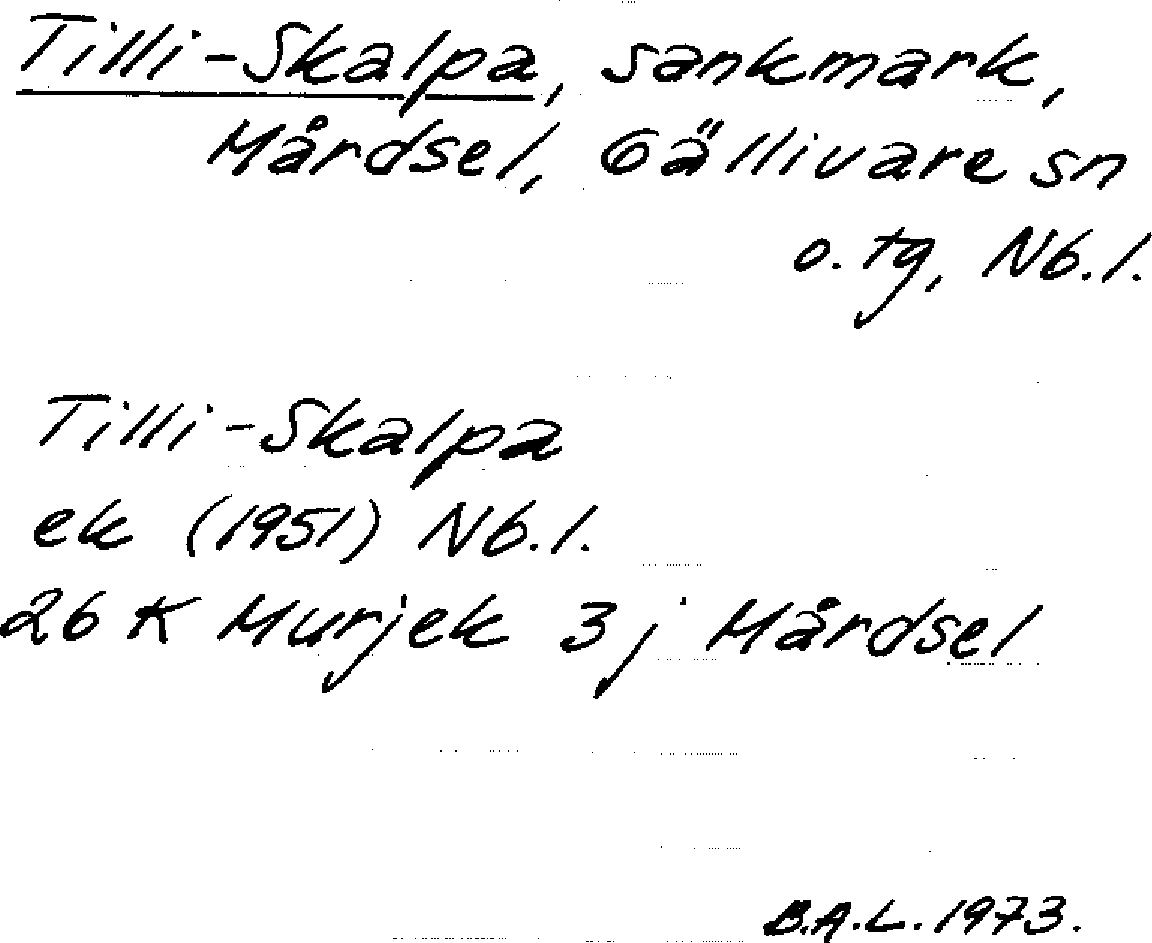 Tilli-Skalpa, sankmark,
Mårdsel, Gällivare sn
o. tg, Nb.l.
Tilli-Skalpa
ek (1951) Nb.l.
26 K Murjek 3j Mårdsel
B.A.L. 1973.